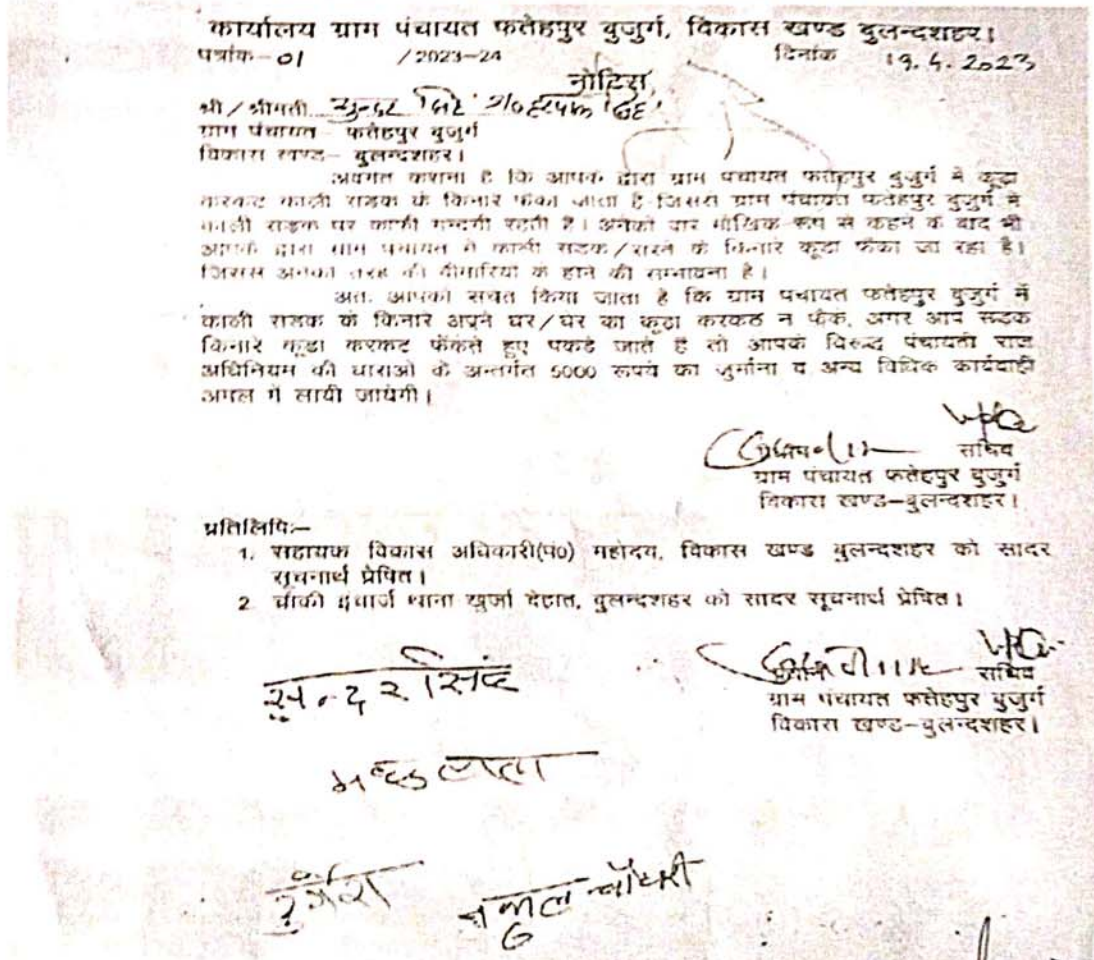 कार्यालय ग्राम पंचायत फतेहपुर बुजुर्ग, विकास खण्ड बुलन्दशहर।
पत्रांक-01 /2023-24 दिनांक 19.4.2023
नोटिस
श्री/श्रीमती सुन्दर सिंह S/o
ग्राम पंचायत- फतेहपुर बुजुर्ग
विकास खण्ड- बुलन्दशहर।
अवगत कराना है कि आपके द्वारा ग्राम पंचायत फतेहपुर बुजुर्ग में कूडा
करकट काली सडक के किनारे फेंका जाता है जिससे ग्राम पंचायत फतेहपुर बुजुर्ग में
काली सडक पर काफी गन्दगी रहती है। अनेको बार मौखिक रूप से कहने के बाद भी
आपके द्वारा ग्राम पंचायत में काली सडक/रास्ते के किनारे कूडा फेंका जा रहा है।
जिसस अनेको तरह की बीमारियो के होने की सम्भावना है।
अतः आपको सचेत किया जाता है कि ग्राम पंचायत फतेहपुर बुजुर्ग में
काली सडक के किनारे अपने घर/घेर का कूडा करकठ न फेंके, अगर आप सडक
किनारे कूडा करकट फेंकते हुए पकडे जाते है तो आपके विरूद्ध पंचायती राज
अधिनियम की धाराओ के अन्तर्गत 5000 रूपये का जुर्माना व अन्य विधिक कार्यवाही
अमल में लायी जायेगी।
सचिव
ग्राम पंचायत फतेहपुर बुजुर्ग
विकास खण्ड-बुलन्दशहर।
प्रतिलिपिः-
1. सहायक विकास अधिकारी(पं0) महोदय, विकास खण्ड बुलन्दशहर को सादर
सूचनार्थ प्रेषित।
2 चौकी इंचार्ज थाना खुर्जा देहात, बुलन्दशहर को सादर सूचनार्थ प्रेषित।
सचिव
ग्राम पंचायत फतेहपुर बुजुर्ग
विकास खण्ड-बुलन्दशहर।
सुन्दर सिंह
लता
नकुल चौधरी